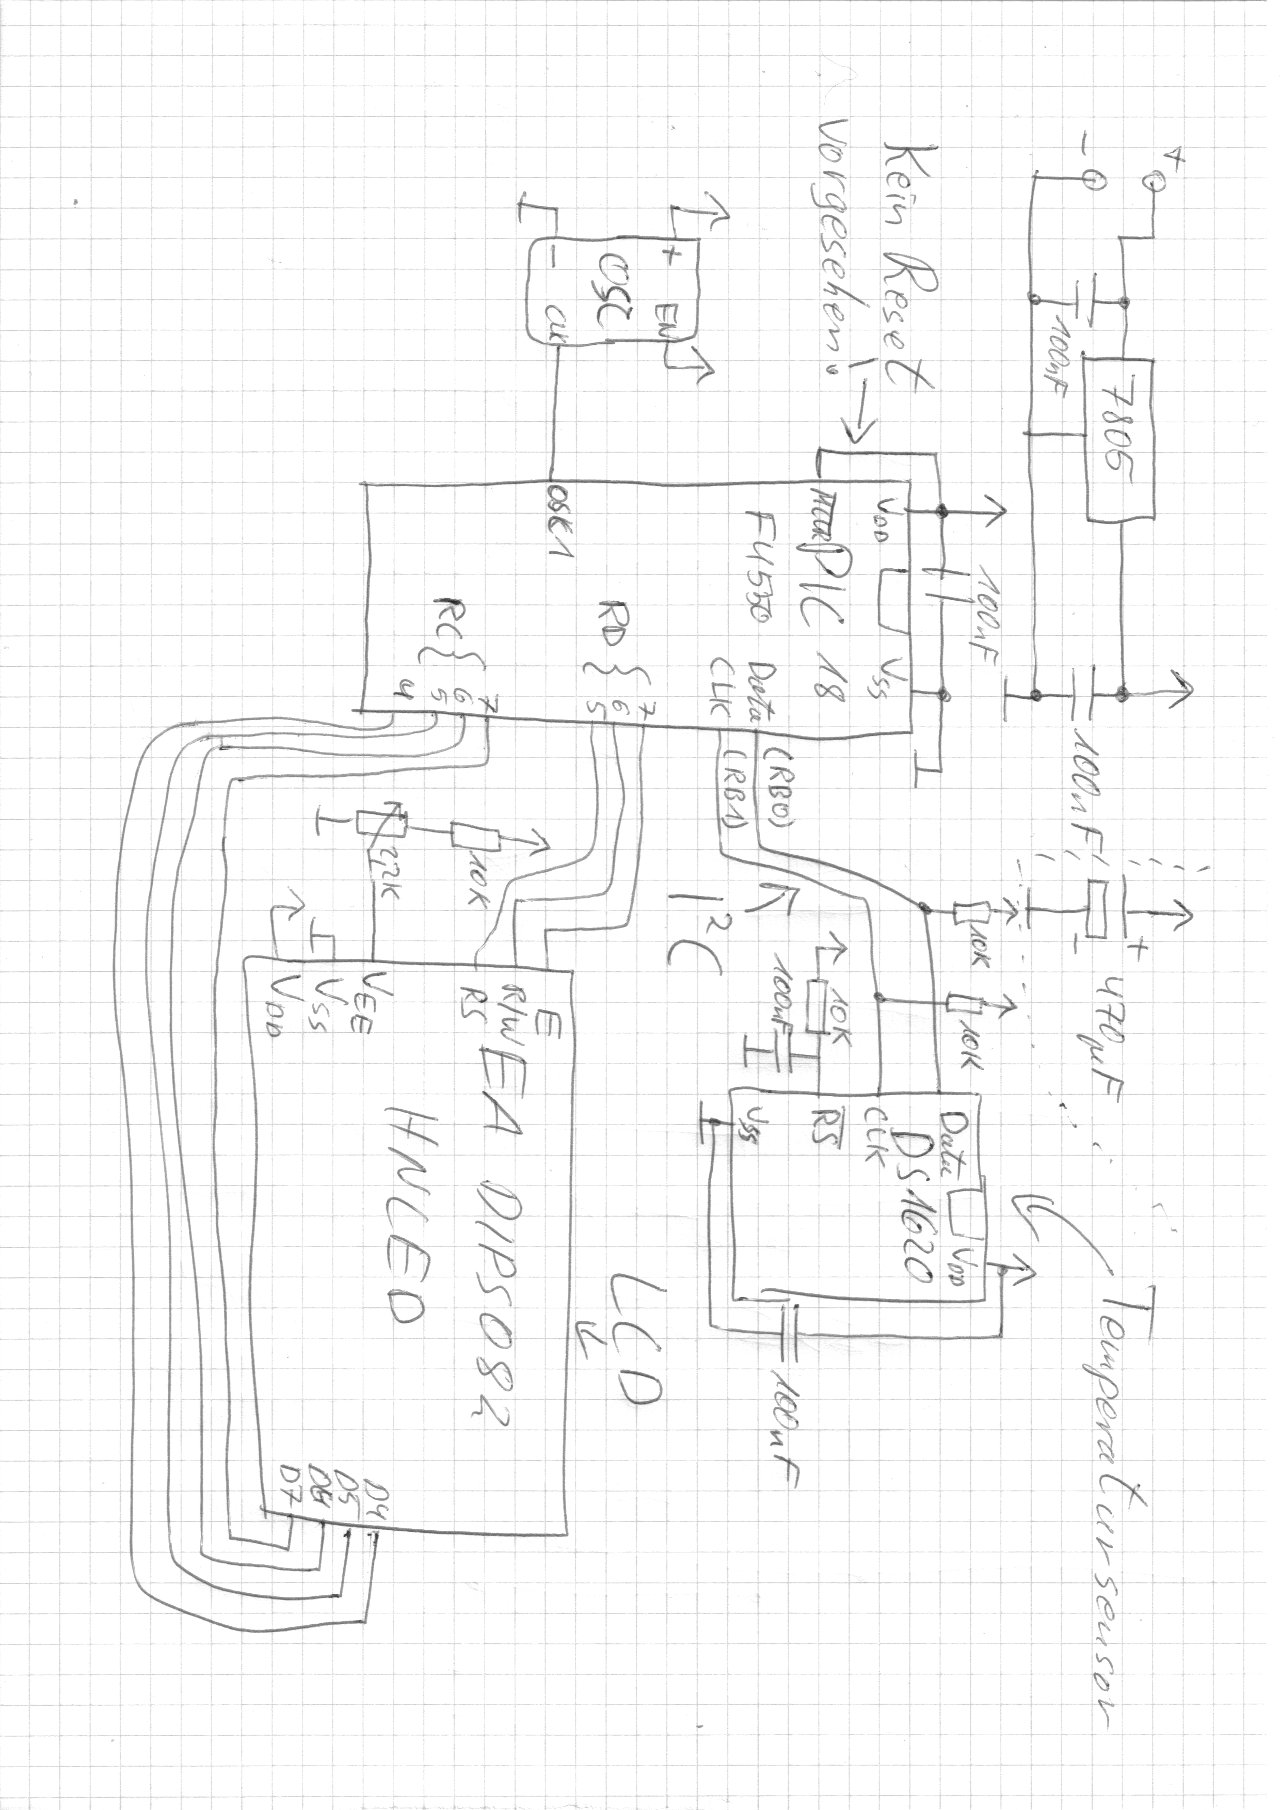 +
-
7805
100nF
100nF
+
-
470µF
Temperatursensor
Kein Reset
vorgesehen!
100nF
VDD
VSS
PIC 18
F4550
Data
CLK
(RB0)
(RB1)
I²C
10K
10K
10K
100nF
Data
VDD
DS1620
CLK
RS
VSS
100nF
+
EN
OSC
-
CLK
OSK1
RD {
7
6
5
RC {
7
6
5
4
10K
2,2K
LCD
E
R/W
RS
EA DIPS082
HNLED
VEE
VSS
VDD
D4
D5
D6
D7